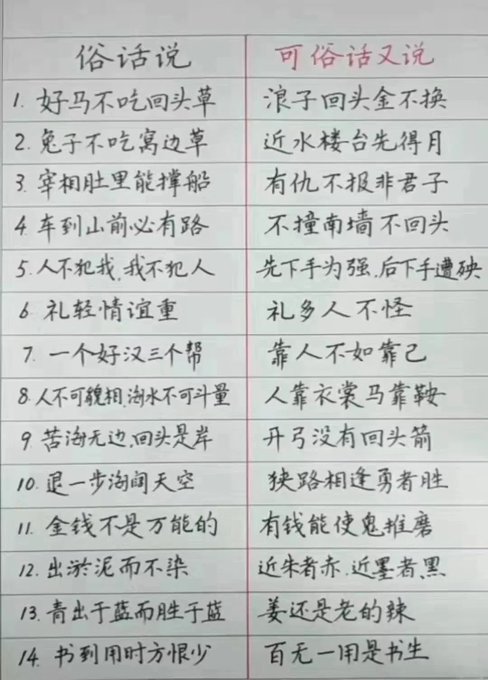 俗话说 可俗话又说
1. 好马不吃回头草 浪子回头金不换
2. 兔子不吃窝边草 近水楼台先得月
3. 宰相肚里能撑船 有仇不报非君子
4. 车到山前必有路 不撞南墙不回头
5. 人不犯我,我不犯人 先下手为强.后下手遭殃
6. 礼轻情谊重 礼多人不怪
7. 一个好汉三个帮 靠人不如靠己
8. 人不可貌相,海水不可斗量 人靠衣裳马靠鞍
9. 苦海无边,回头是岸 开弓没有回头箭
10. 退一步海阔天空 狭路相逢勇者胜
11. 金钱不是万能的 有钱能使鬼推磨
12. 出淤泥而不染 近朱者赤.近墨者黑
13. 青出于蓝而胜于蓝 姜还是老的辣
14. 书到用时方恨少 百无一用是书生